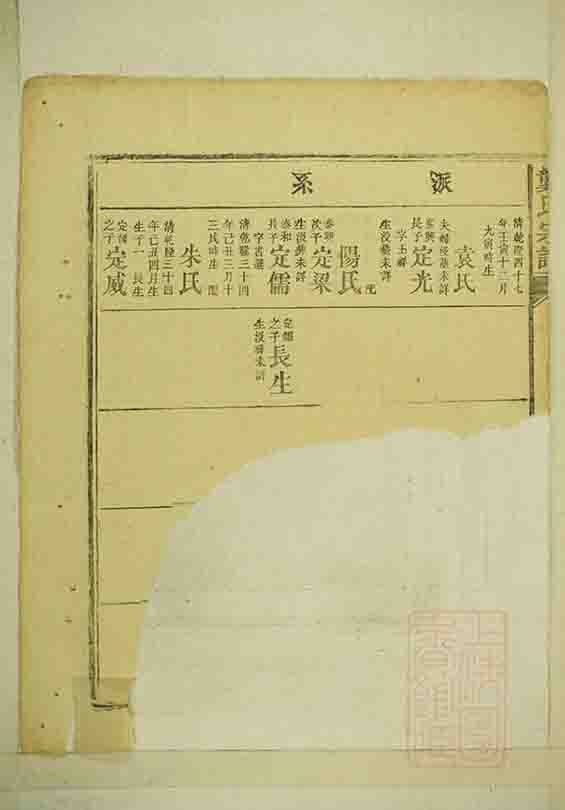 派系
清乾隆四十七
年壬寅十二月
大寅時生
袁氏
夫婦没葬未詳
長子
定光
字上
生没葬未詳
配
陽氏
泰和
次子
定梁
生没葬未詳
泰和
長子
定儒
清乾隆三十四
年己丑三月十
三辰時生 配
朱氏
清乾隆三十四
年己丑四月生
生子一 長生
之子
定威
定儒
之子
長生
生没葬未詳